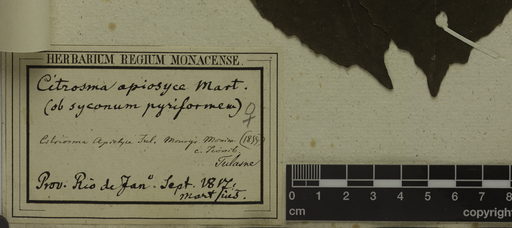 HERBARIUM REGIUM MONACENSE.
Citrosma apiosyce Mart.
(ob syconum pyriformem) ♀
Citriosma Apiosyce Tul. Monogr. Monim. (1855)
c. Tulasne
Prov. Rio de Jan°. Sept. 1817.
Mart
0 1 2 3 4 5 6 7 8
cm copyright